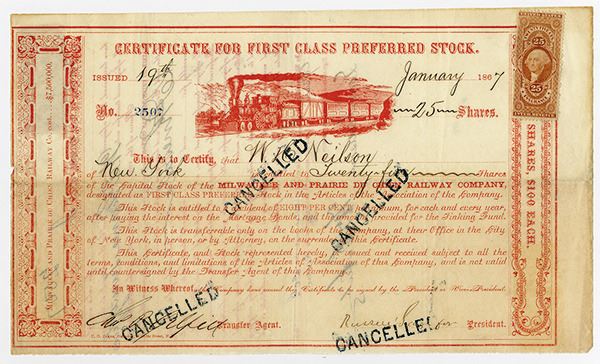 CERTIFICATE FOR FIRST CLASS PREFERRED STOCK.
ISSUED 19th January 1867
No. 2502 25 Shares.
This is to Certify, that W. H. Neilson
of New York is entitled to Twenty-five Shares
of the Capital Stock of the MILWAUKEE AND PRAIRIE DU CHIEN RAILWAY COMPANY,
designated as FIRST CLASS PREFERRED STOCK in the Articles of Association of the Company.
This Stock is entitled to Dividends of EIGHT PER CENT. per annum, for each and every year,
after paying the interest on the Mortgage Bonds, and the amount provided for the Sinking Fund.
This Stock is transferable only on the books of the Company, at their Office in the City
of New York, in person, or by Attorney, on the surrender of this Certificate.
This Certificate, and Stock represented hereby, is issued and received subject to all the
terms, conditions, and limitations of the Articles of Association of this Company, and is not valid
until countersigned by the Transfer Agent of this Company.
In Witness Whereof, the Company have caused this Certificate to be signed by the President or Vice-President.
Transfer Agent.
President.
CANCELLED
CANCELLED
CANCELLED
CANCELLED
MILWAUKEE AND PRAIRIE DU CHIEN RAILWAY CO.
$7,500,000.
SHARES, $100 EACH.
25 25